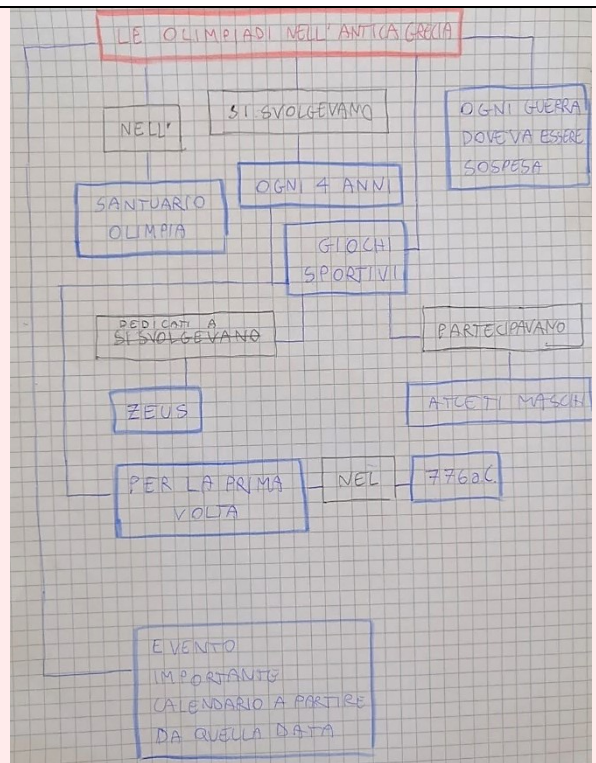 LE OLIMPIADI NELL'ANTICA GRECIA
NELL'
SI SVOLGEVANO
OGNI GUERRA
DOVEVA ESSERE
SOSPESA
SANTUARIO
OLIMPIA
OGNI 4 ANNI
GIOCHI
SPORTIVI
DEDICATI A
SI SVOLGEVANO
PARTECIPAVANO
ZEUS
ATLETI MASCHI
PER LA PRIMA
VOLTA
NEL
776 a.C.
EVENTO
IMPORTANTE
CALENDARIO A PARTIRE
DA QUELLA DATA